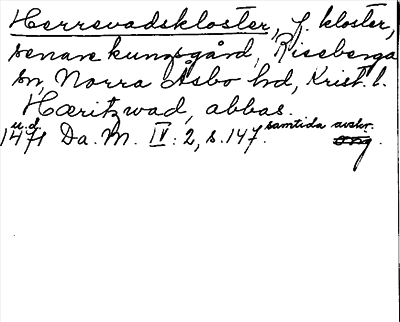 Herrevadskloster, f. kloster,
senare kungsgård, Riseberga
sn, Norra Åsbo hd, Krist. l.
Hæritzwad, abbas.
u.d.
1471 Da. M. IV: 2, s. 147. samtida avskr.
orig.